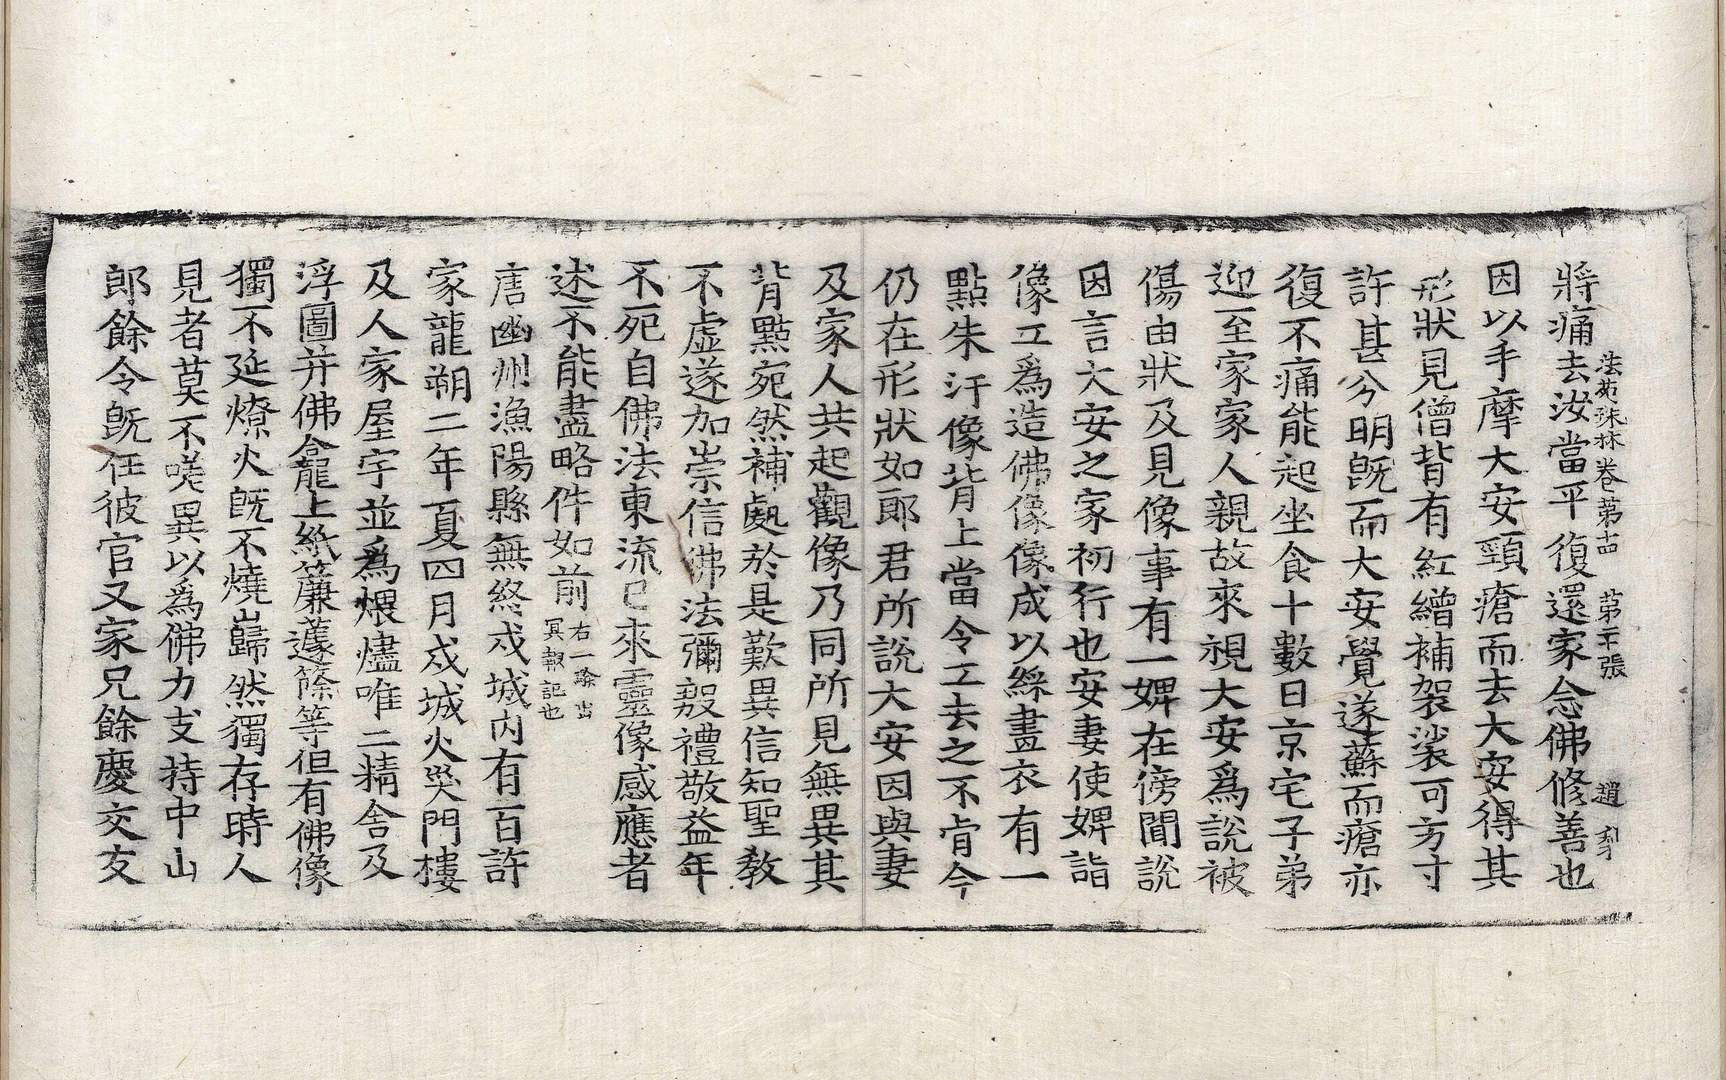 法苑珠林卷第十四 第二十張 趙 刻
將痛去汝當平復還家念佛修善也
因以手摩大安頸瘡而去大安得其
形狀見僧背有紅繒補袈裟可方寸
許甚分明旣而大安覺遂蘇而瘡亦
復不痛能起坐食十數日京宅子弟
迎至家家人親故來視大安爲說被
傷由狀及見像事有一婢在傍聞說
因言大安之家初行也安妻使婢詣
像工爲造佛像像成以綵畫衣有一
點朱汗像背上當令工去之不肯今
仍在形狀如郎君所說大安因與妻
及家人共起觀像乃同所見無異其
背點宛然補處於是歎異信知聖教
不虛遂加崇信佛法彌殷禮敬益年
不死自佛法東流已來靈像感應者
述不能盡略件如前右一驗出冥報記也
唐幽州漁陽縣無終戍城內有百許
家龍朔二年夏四月戍城火災門樓
及人家屋宇並爲煨燼唯二精舍及
浮圖并佛龕上紙簾蘧篨等但有佛像
獨不延燎火旣不燒巋然獨存時人
見者莫不嗟異以爲佛力支持中山
郎餘令旣任彼官又家兄餘慶交友